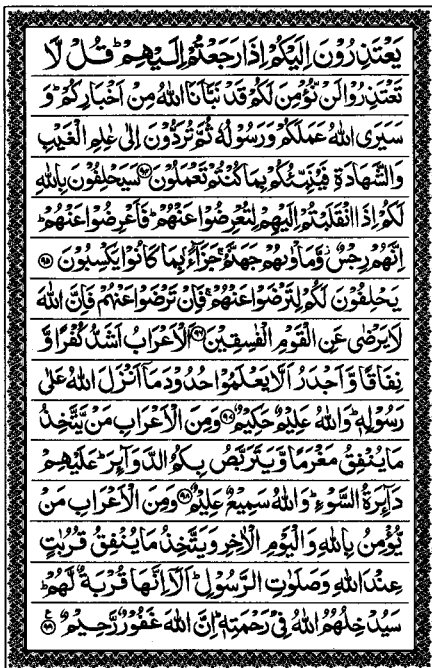 يَعْتَذِرُوْنَ اِلَيْكُمْ اِذَا رَجَعْتُمْ اِلَيْهِمْ ؕ قُلْ لَّا
تَعْتَذِرُوْا لَنْ نُّؤْمِنَ لَكُمْ قَدْ نَبَّاَنَا اللّٰهُ مِنْ اَخْبَارِكُمْ ؕ وَ
سَيَرَى اللّٰهُ عَمَلَكُمْ وَرَسُوْلُهٗ ثُمَّ تُرَدُّوْنَ اِلٰى عٰلِمِ الْغَيْبِ
وَالشَّهَادَةِ فَيُنَبِّئُكُمْ بِمَا كُنْتُمْ تَعْمَلُوْنَ ﴿۹۴﴾ سَيَحْلِفُوْنَ بِاللّٰهِ
لَكُمْ اِذَا انْقَلَبْتُمْ اِلَيْهِمْ لِتُعْرِضُوْا عَنْهُمْ ؕ فَاَعْرِضُوْا عَنْهُمْ ؕ
اِنَّهُمْ رِجْسٌ وَّمَاْوٰىهُمْ جَهَنَّمُ جَزَآءًۢ بِمَا كَانُوْا يَكْسِبُوْنَ ﴿۹۵﴾
يَحْلِفُوْنَ لَكُمْ لِتَرْضَوْا عَنْهُمْ ۚ فَاِنْ تَرْضَوْا عَنْهُمْ فَاِنَّ اللّٰهَ
لَا يَرْضٰى عَنِ الْقَوْمِ الْفٰسِقِيْنَ ﴿۹۶﴾ اَلْاَعْرَابُ اَشَدُّ كُفْرًا وَّ
نِفَاقًا وَّاَجْدَرُ اَلَّا يَعْلَمُوْا حُدُوْدَ مَاۤ اَنْزَلَ اللّٰهُ عَلٰى
رَسُوْلِهٖ ؕ وَاللّٰهُ عَلِيْمٌ حَكِيْمٌ ﴿۹۷﴾ وَمِنَ الْاَعْرَابِ مَنْ يَّتَّخِذُ
مَا يُنْفِقُ مَغْرَمًا وَّيَتَرَبَّصُ بِكُمُ الدَّوَآئِرَ ؕ عَلَيْهِمْ
دَآئِرَةُ السَّوْءِ ؕ وَاللّٰهُ سَمِيْعٌ عَلِيْمٌ ﴿۹۸﴾ وَمِنَ الْاَعْرَابِ مَنْ
يُّؤْمِنُ بِاللّٰهِ وَالْيَوْمِ الْاٰخِرِ وَيَتَّخِذُ مَا يُنْفِقُ قُرُبٰتٍ
عِنْدَ اللّٰهِ وَصَلَوٰتِ الرَّسُوْلِ ؕ اَلَاۤ اِنَّهَا قُرْبَةٌ لَّهُمْ ؕ
سَيُدْخِلُهُمُ اللّٰهُ فِيْ رَحْمَتِهٖ ؕ اِنَّ اللّٰهَ غَفُوْرٌ رَّحِيْمٌ ﴿۹۹﴾